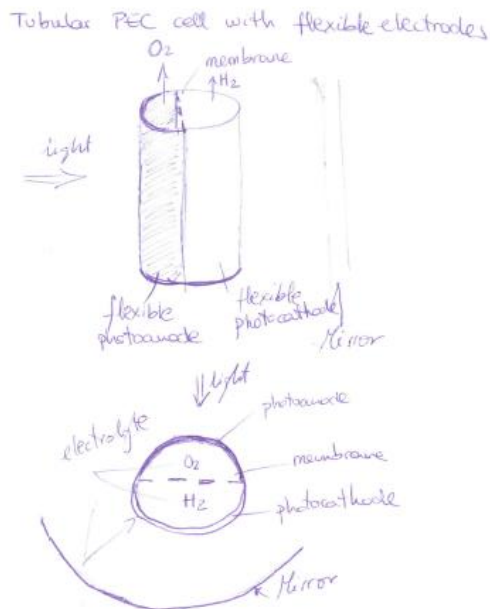 Tubular PEC cell with flexible electrodes
O2
membrane
H2
light
flexible
photoanode
flexible
photocathode
Mirror
light
photoanode
electrolyte
O2
membrane
H2
photocathode
Mirror